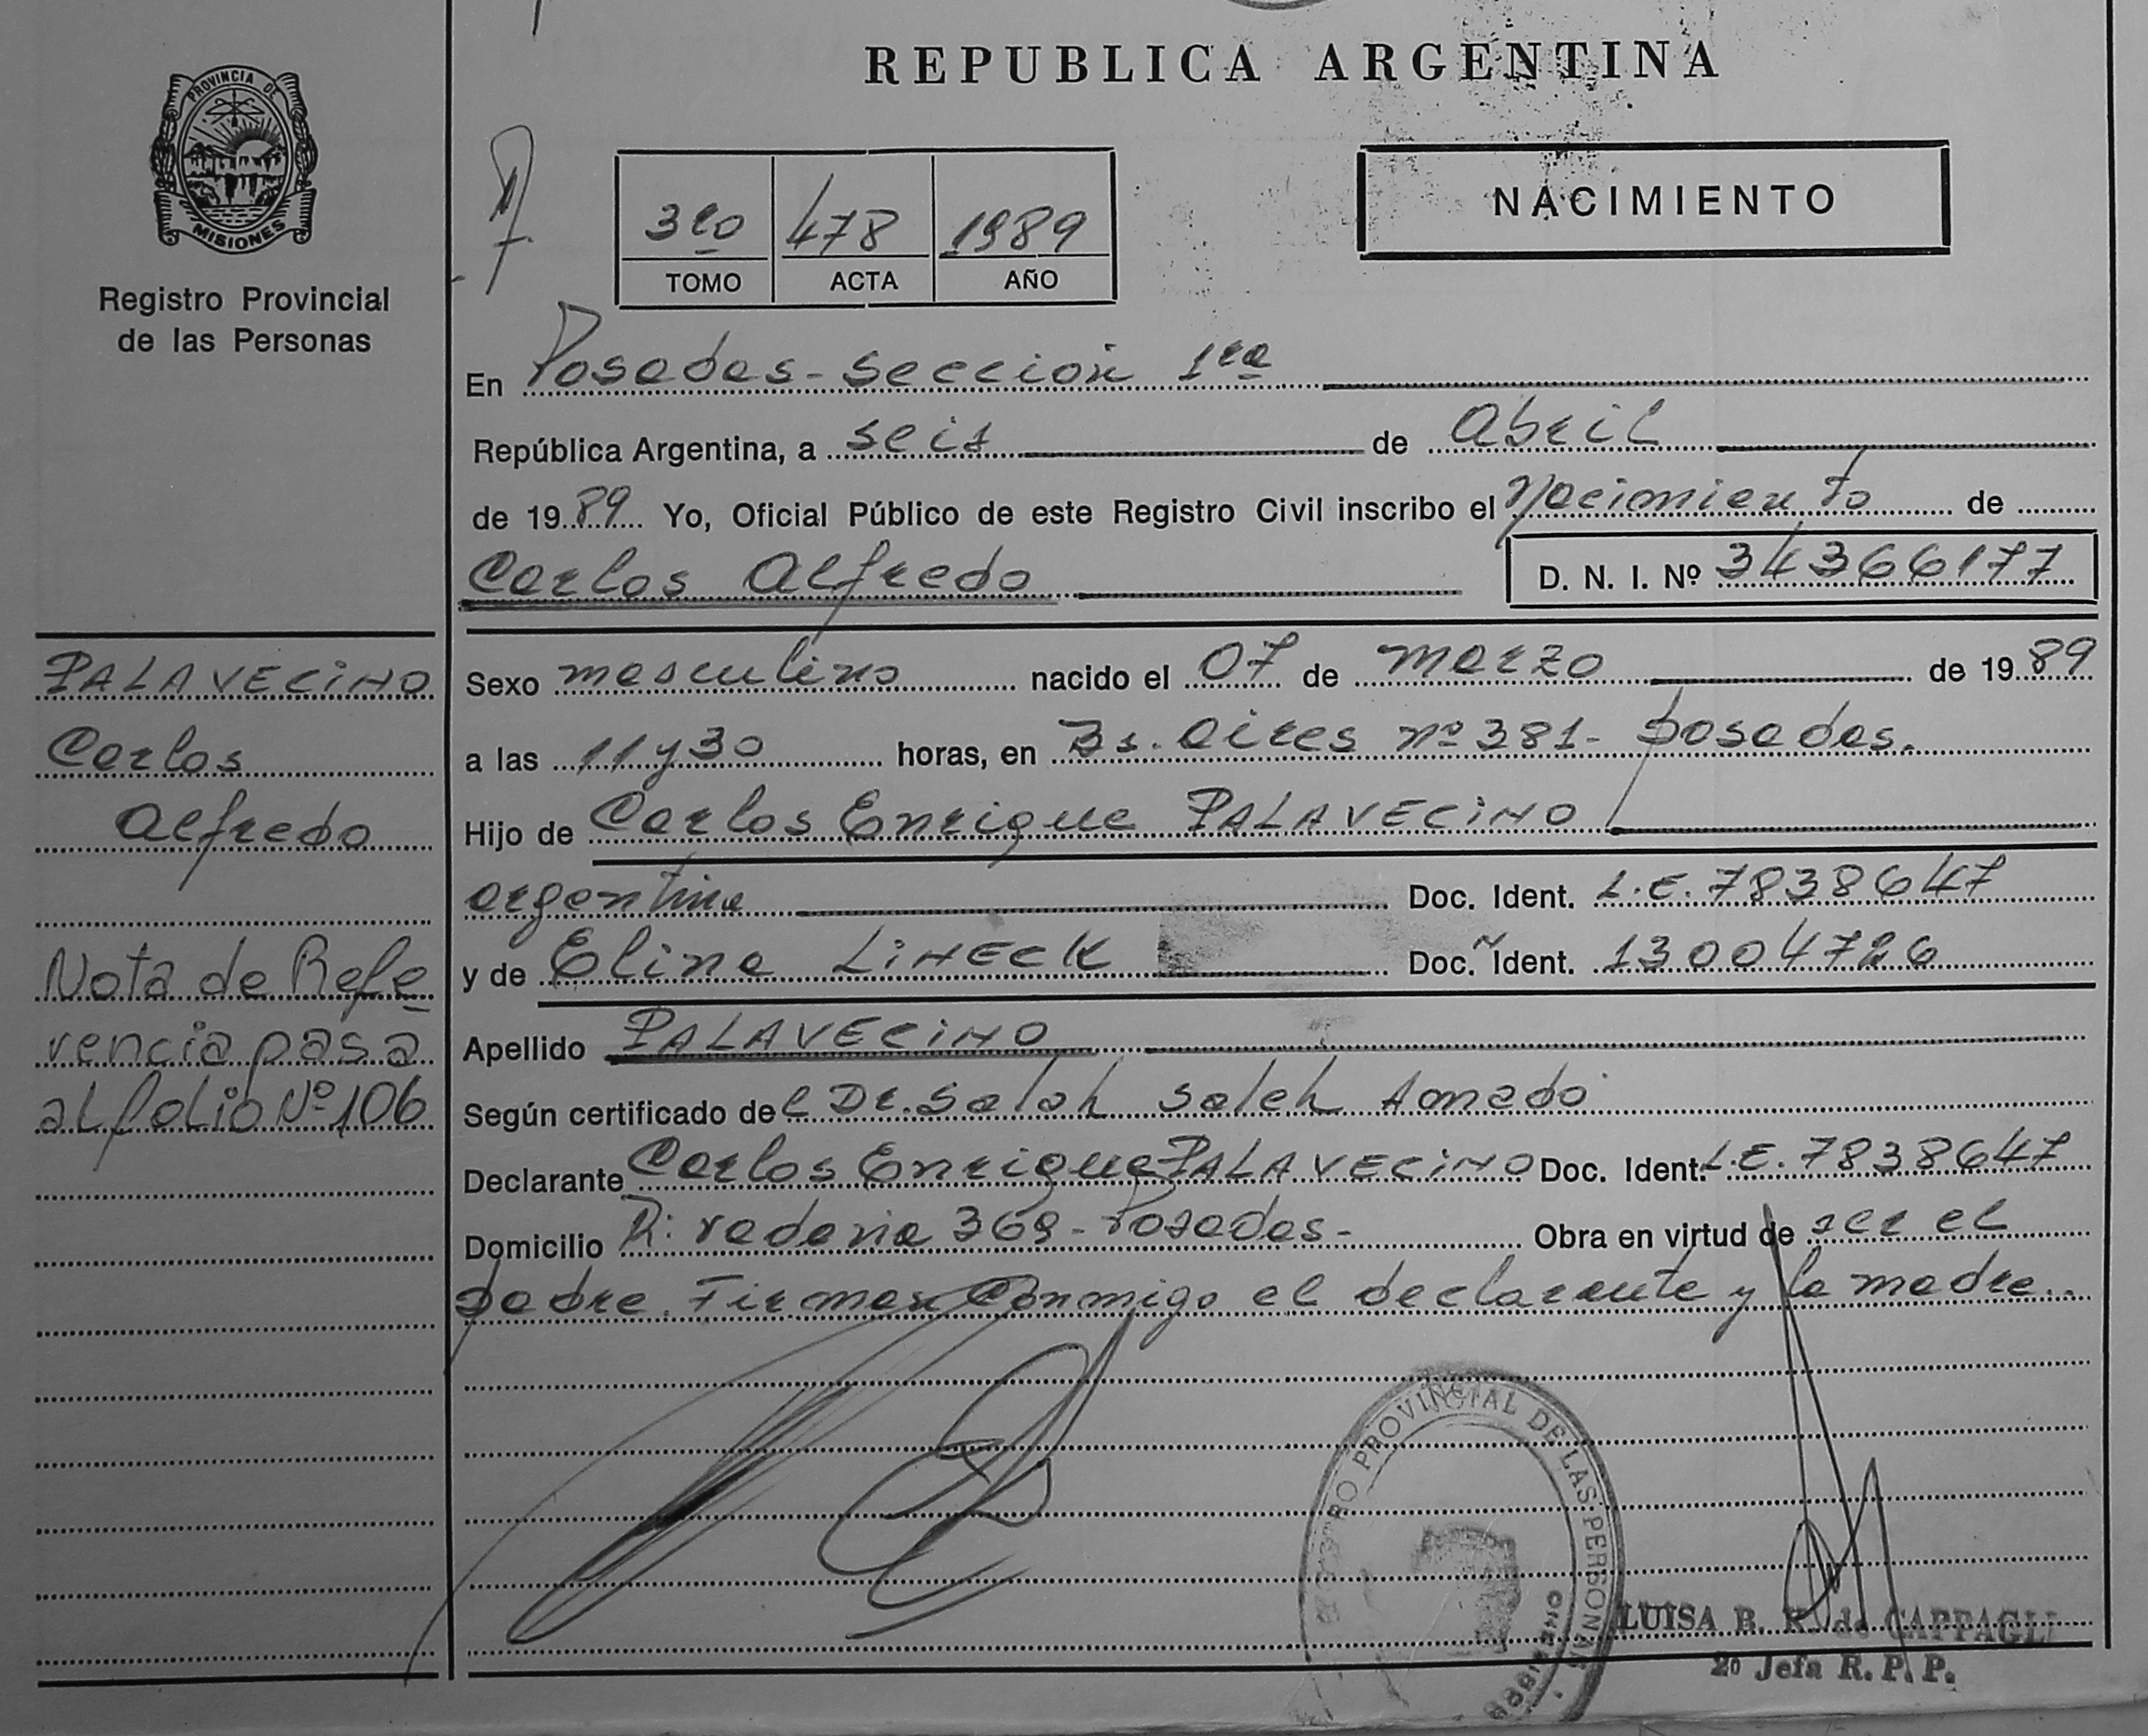 REPUBLICA ARGENTINA
PROVINCIA DE
MISIONES
Registro Provincial
de las Personas
3ro 478 1989
TOMO ACTA AÑO
NACIMIENTO
En Posadas - Sección 1ra
República Argentina, a seis de Abril
de 1989 Yo, Oficial Público de este Registro Civil inscribo el Nacimiento de
Carlos Alfredo D. N. I. Nº 34366177
PALAVECINO
Carlos
Alfredo
Nota de Refe
rencia pasa
al folio Nº 106
Sexo masculino nacido el 07 de marzo de 1989
a las 11 y 30 horas, en Bs. Aires nº 381 - posadas.
Hijo de Carlos Enrique PALAVECINO
argentina Doc. Ident. L.E. 7838647
y de Elina LINECK Doc. Ident. 13004726
Apellido PALAVECINO
Según certificado del Dr. Salah Saleh Amado
Declarante Carlos Enrique PALAVECINO Doc. Ident. L.E. 7838647
Domicilio Rivadavia 369 - Posadas - Obra en virtud de ser el
padre. Firman Conmigo el declarante y la madre..
PROVINCIAL DE LAS PERSONAS
LUISA B. K. de
2º Jefa R. P. P.